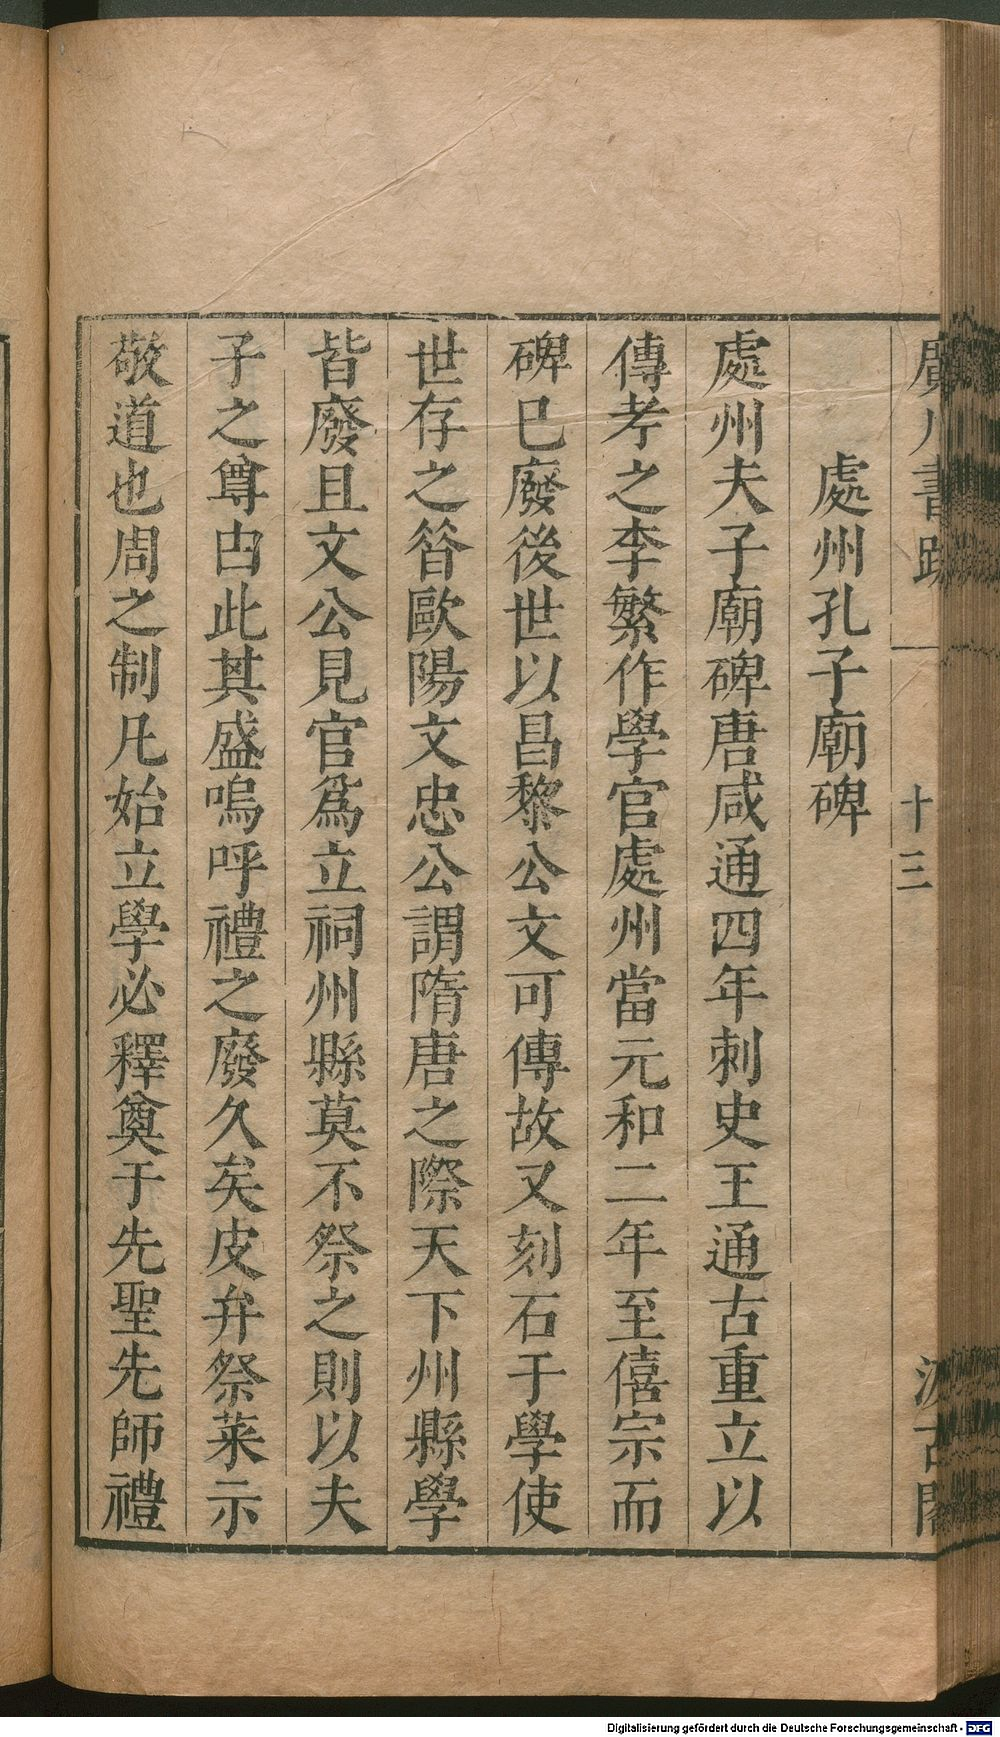 廣川書跋 十三 汲古閣
處州孔子廟碑
處州夫子廟碑唐咸通四年刺史王通古重立以
傳考之李繁作學官處州當元和二年至僖宗而
碑已廢後世以昌黎公文可傳故又刻石于學使
世存之昝歐陽文忠公謂隋唐之際天下州縣學
皆廢且文公見官爲立祠州縣莫不祭之則以夫
子之尊由此其盛嗚呼禮之廢久矣皮弁祭菜示
敬道也周之制凡始立學必釋奠于先聖先師禮
Digitalisierung gefördert durch die Deutsche Forschungsgemeinschaft - DFG